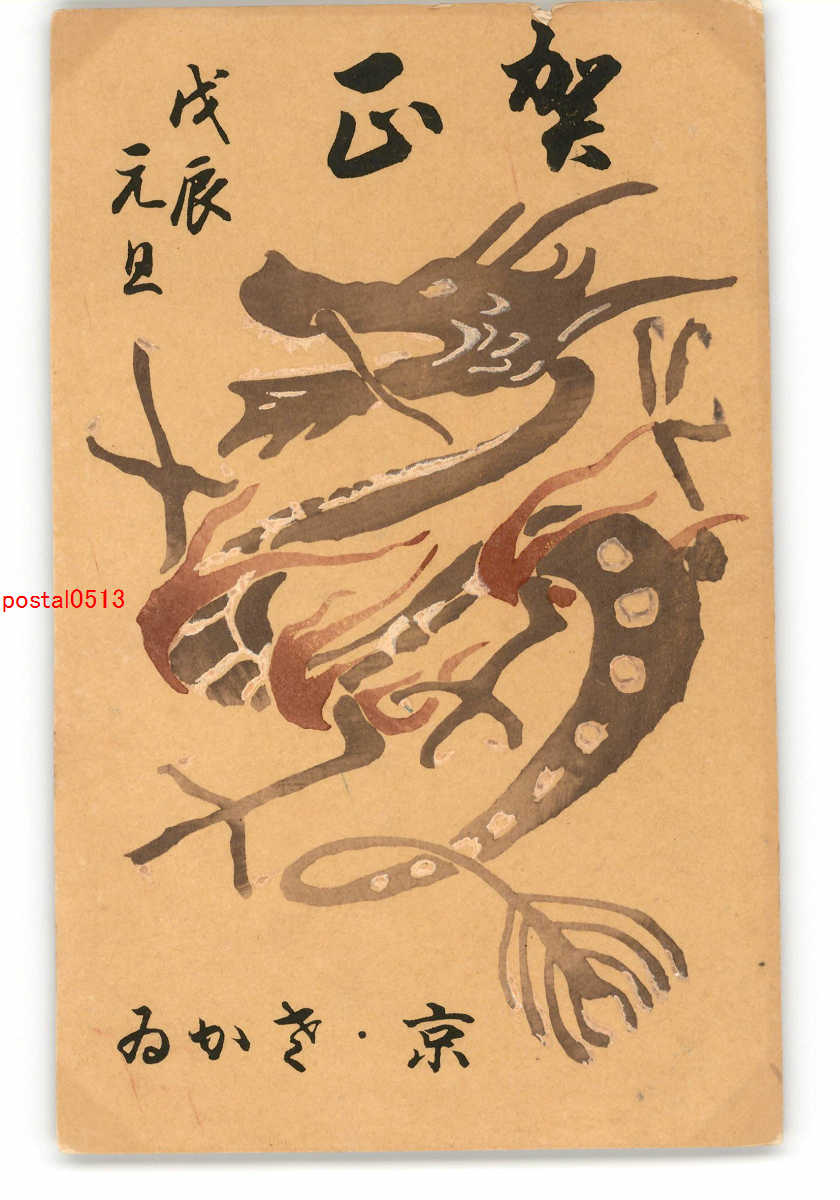 賀正
戊辰
元旦
京・さかゐ
postal0513